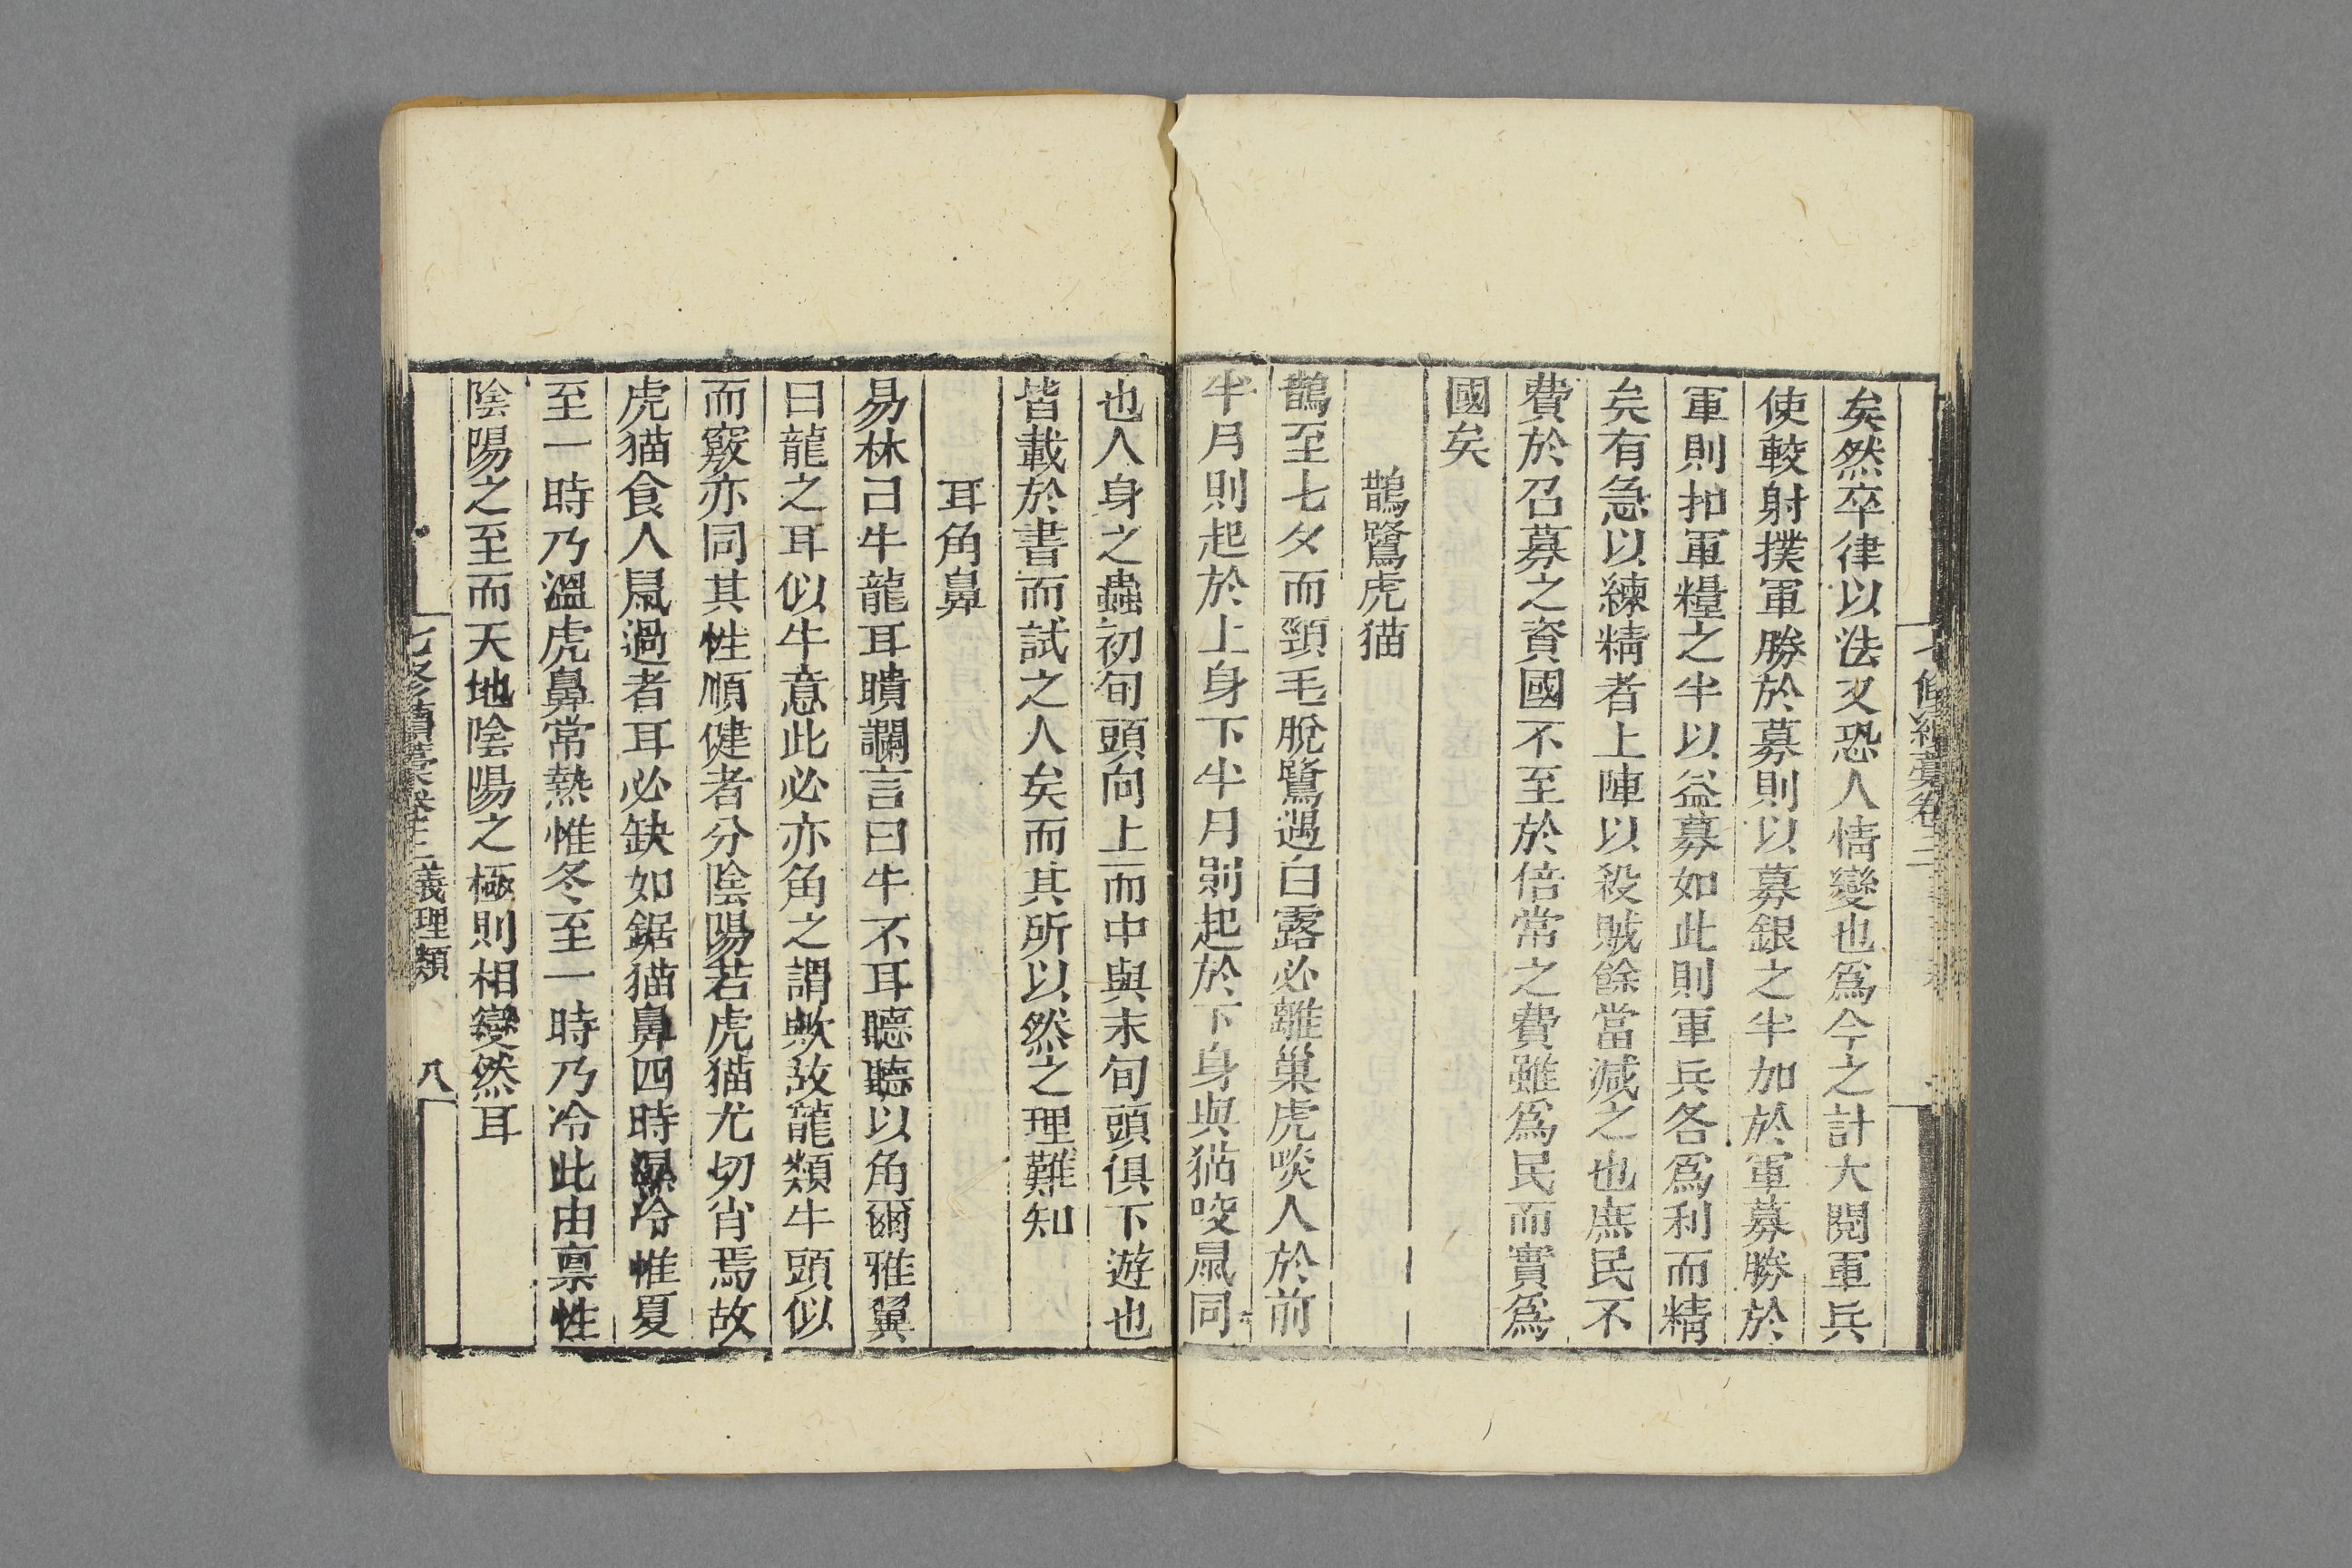 矣然卒律以法又恐人情變也爲今之計大閱軍兵
使較射撲軍勝於募則以募銀之半加於軍募勝於
軍則扣軍糧之半以益募如此則軍兵各爲利而精
矣有急以練精者上陣以殺賊餘當減之也庶民不
費於召募之資國不至於倍常之費雖爲民而實爲
國矣
鵲鷺虎猫
鵲至七夕而頸毛脫鷺遇白露必離巢虎啖人於前
半月則起於上身下半月則起於下身與猫咬鼠同
也人身之蟲初旬頭向上而中與末旬頭俱下遊也
皆載於書而試之人矣而其所以然之理難知
耳角鼻
易林曰牛龍耳聵讕言曰牛不耳聽聽以角爾雅翼
曰龍之耳似牛意此必亦角之謂歟故龍類牛頭似
而竅亦同其性順健者分陰陽若虎猫尤切肖焉故
虎猫食人鼠過者耳必缺如鋸猫鼻四時濕冷惟夏
至一時乃溫虎鼻常熱惟冬至一時乃冷此由禀性
陰陽之至而天地陰陽之極則相變然耳
七修續藁卷三 義理類 八